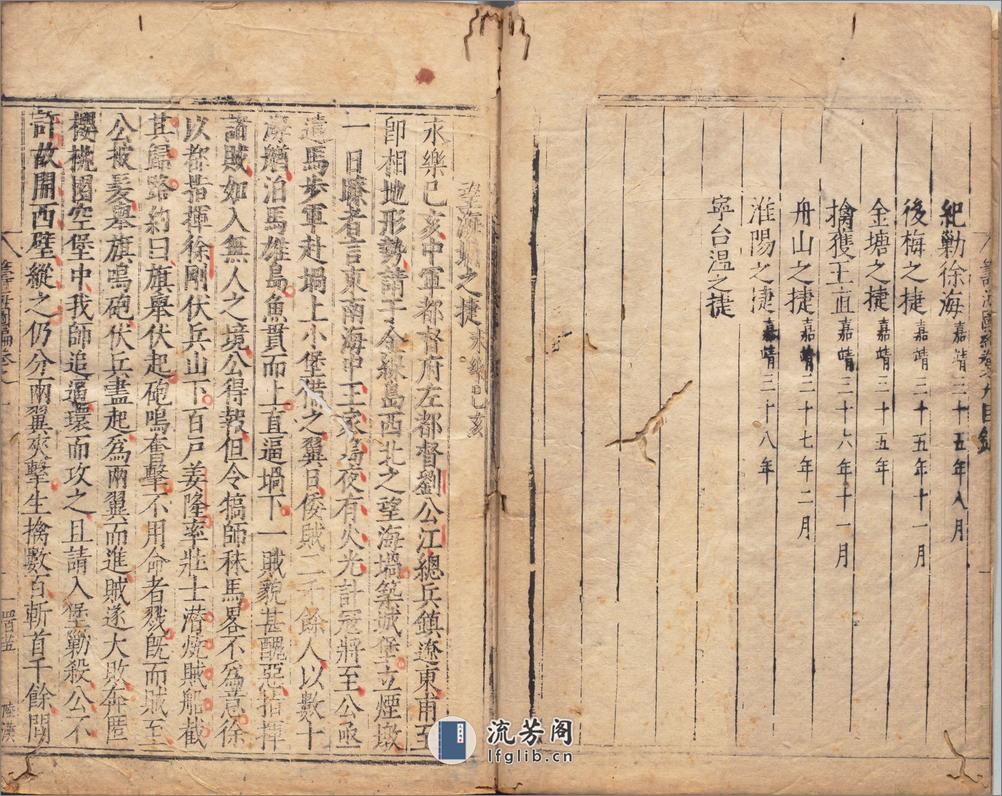 紀勦徐海嘉靖三十五年八月
後梅之捷嘉靖三十五年十一月
金塘之捷嘉靖三十五年
擒獲王直嘉靖三十六年十一月
舟山之捷嘉靖三十七年二月
淮陽之捷嘉靖三十八年
寧台溫之捷
望海堝之捷永樂己亥
永樂己亥中軍都督府左都督劉公江總兵鎮遼東甫至
卽相地形勢請于金線島西北之望海堝築城堡立煙墩
一日瞭者言東南海中王家島夜有火光計寇將至公亟
遣馬步軍赴堝上小堡備之翼日倭賊二千餘人以數十
海艘泊馬雄島魚貫而上直逼堝下一賊貌甚醜惡指揮
諸賊如入無人之境公得報但令犒師秣馬畧不爲意徐
以都指揮徐剛伏兵山下百戶姜隆率壯士潛燒賊船截
其歸路約曰旗舉伏起砲鳴奮擊不用命者戮旣而賊至
公披髪舉旗鳴砲伏兵盡起爲兩翼而進賊遂大敗奔匿
櫻桃園空堡中我師追逼環而攻之且請入堡勦殺公不
許故開西壁縱之仍分兩翼夾擊生擒數百斬首千餘間
流芳阁
lfglib.cn